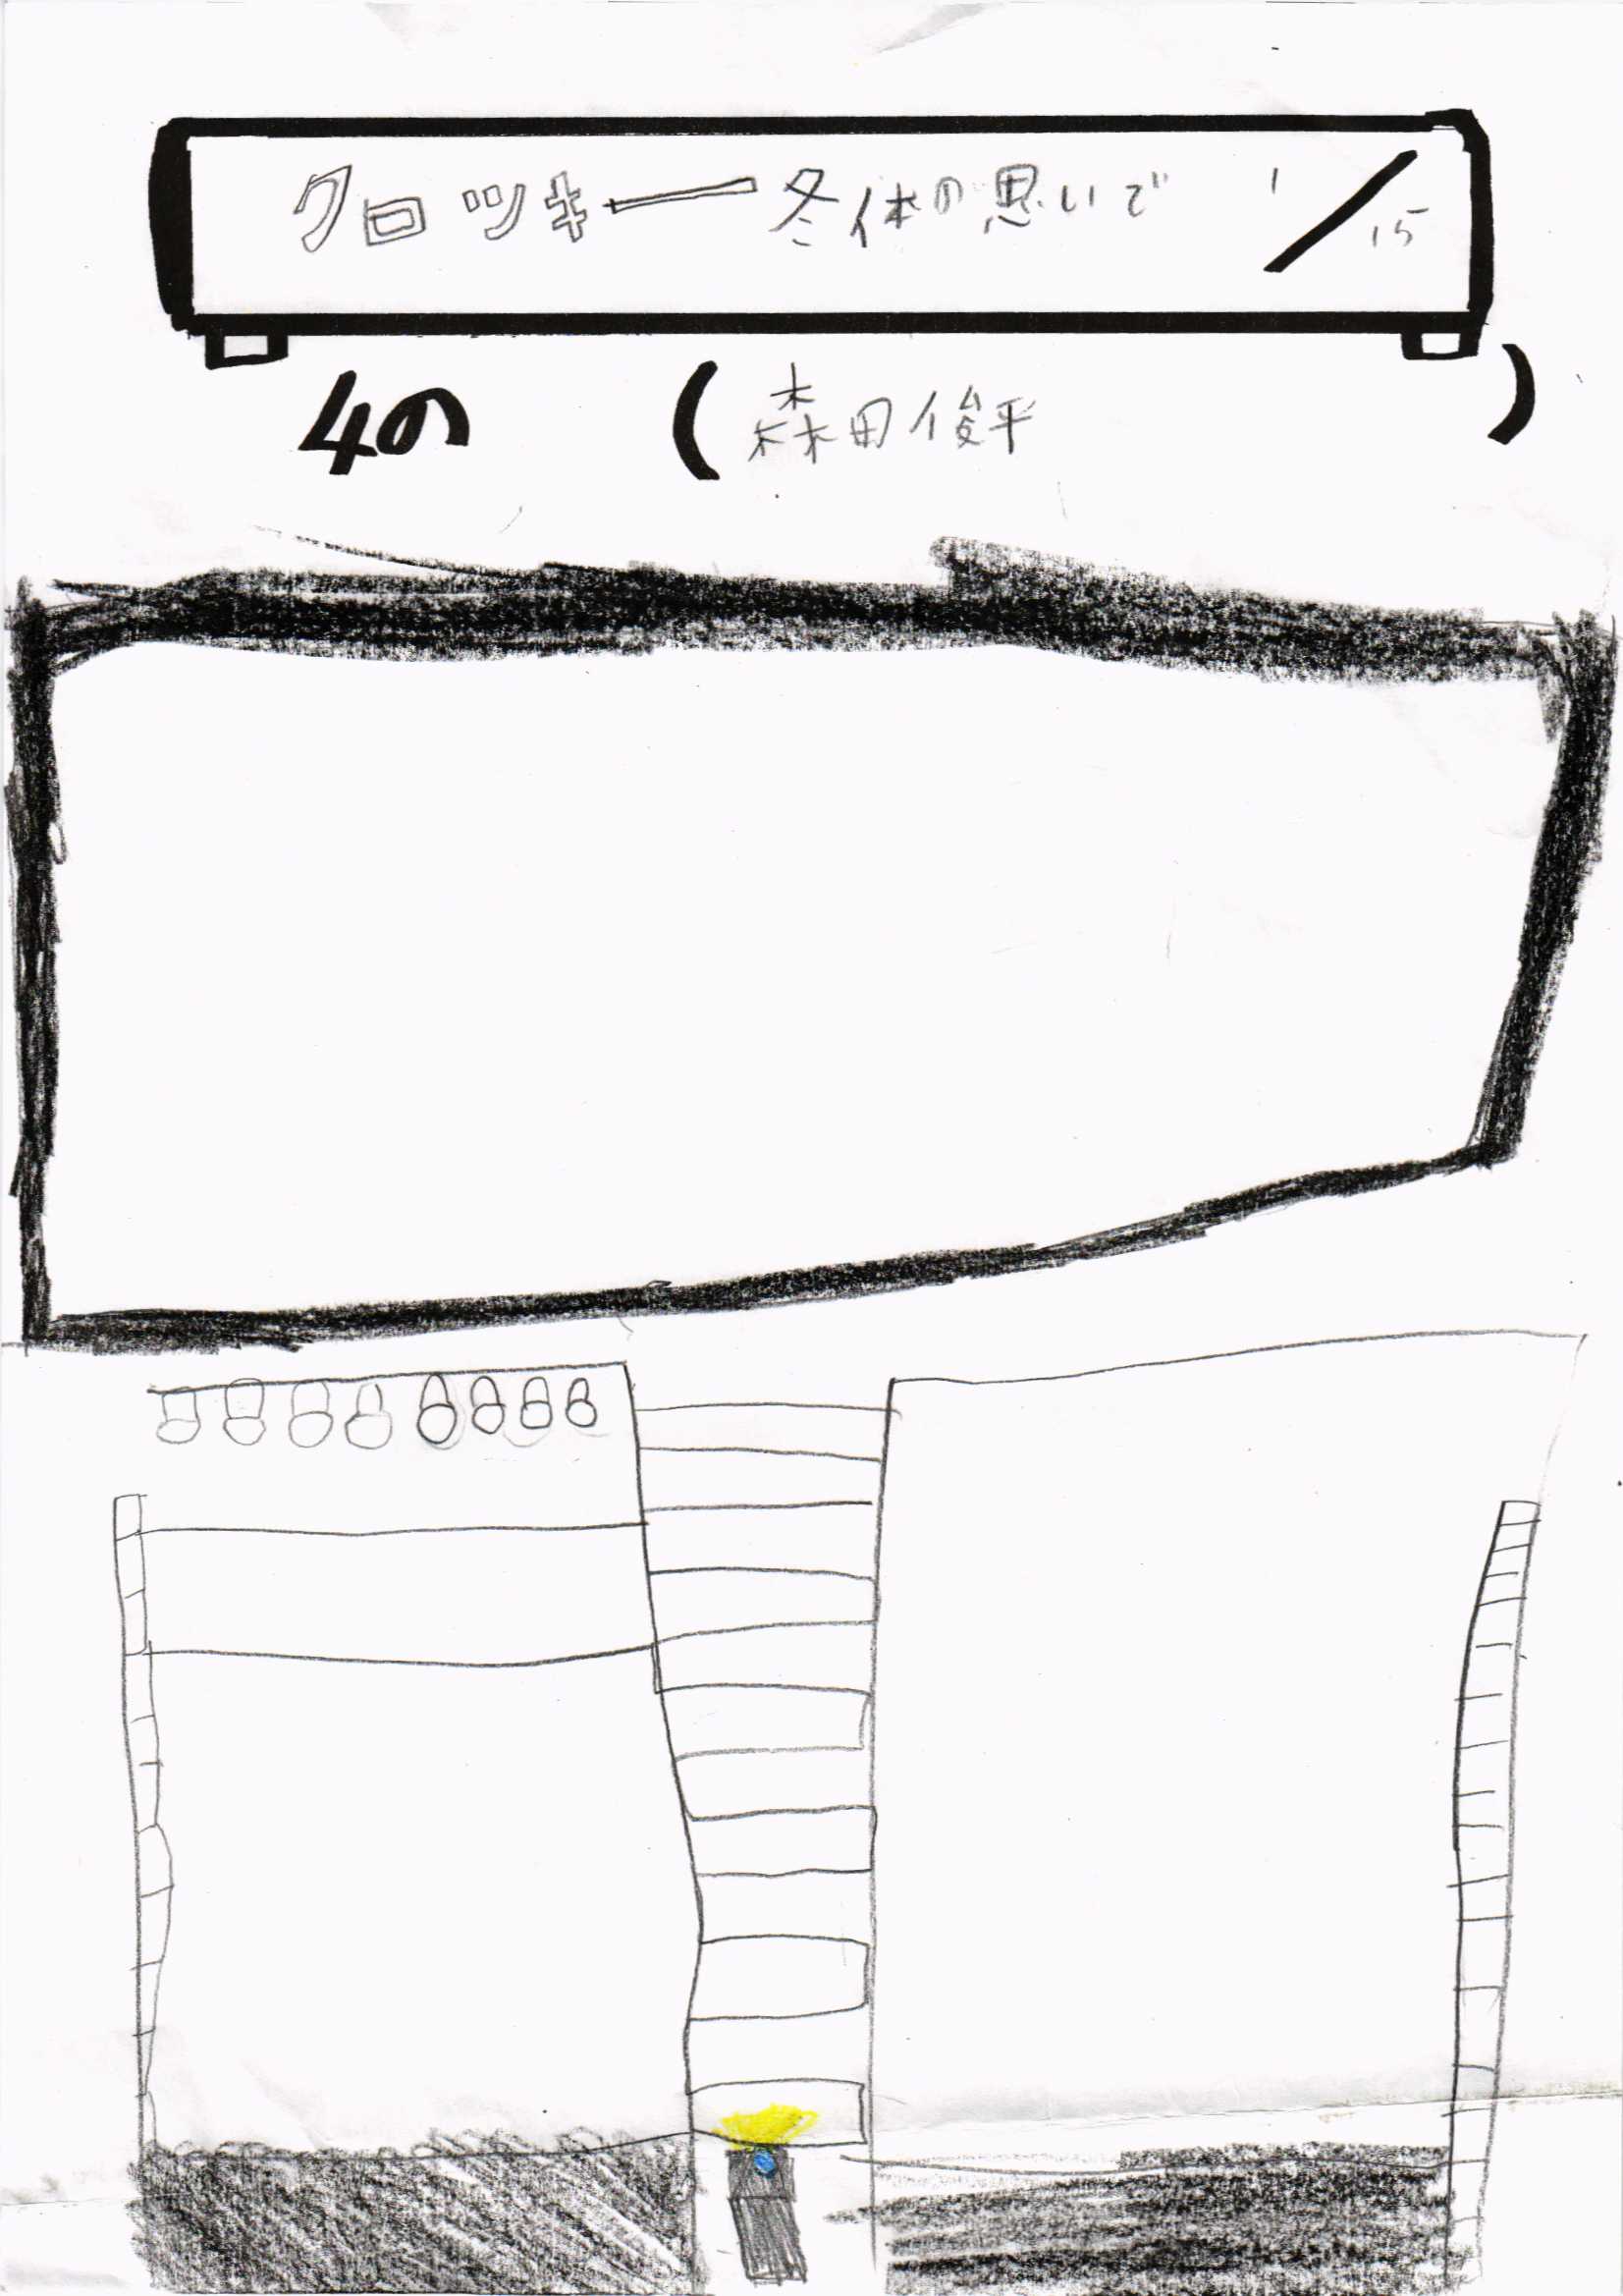 クロッキー冬休の思いで 1/15
4の (森田俊平)